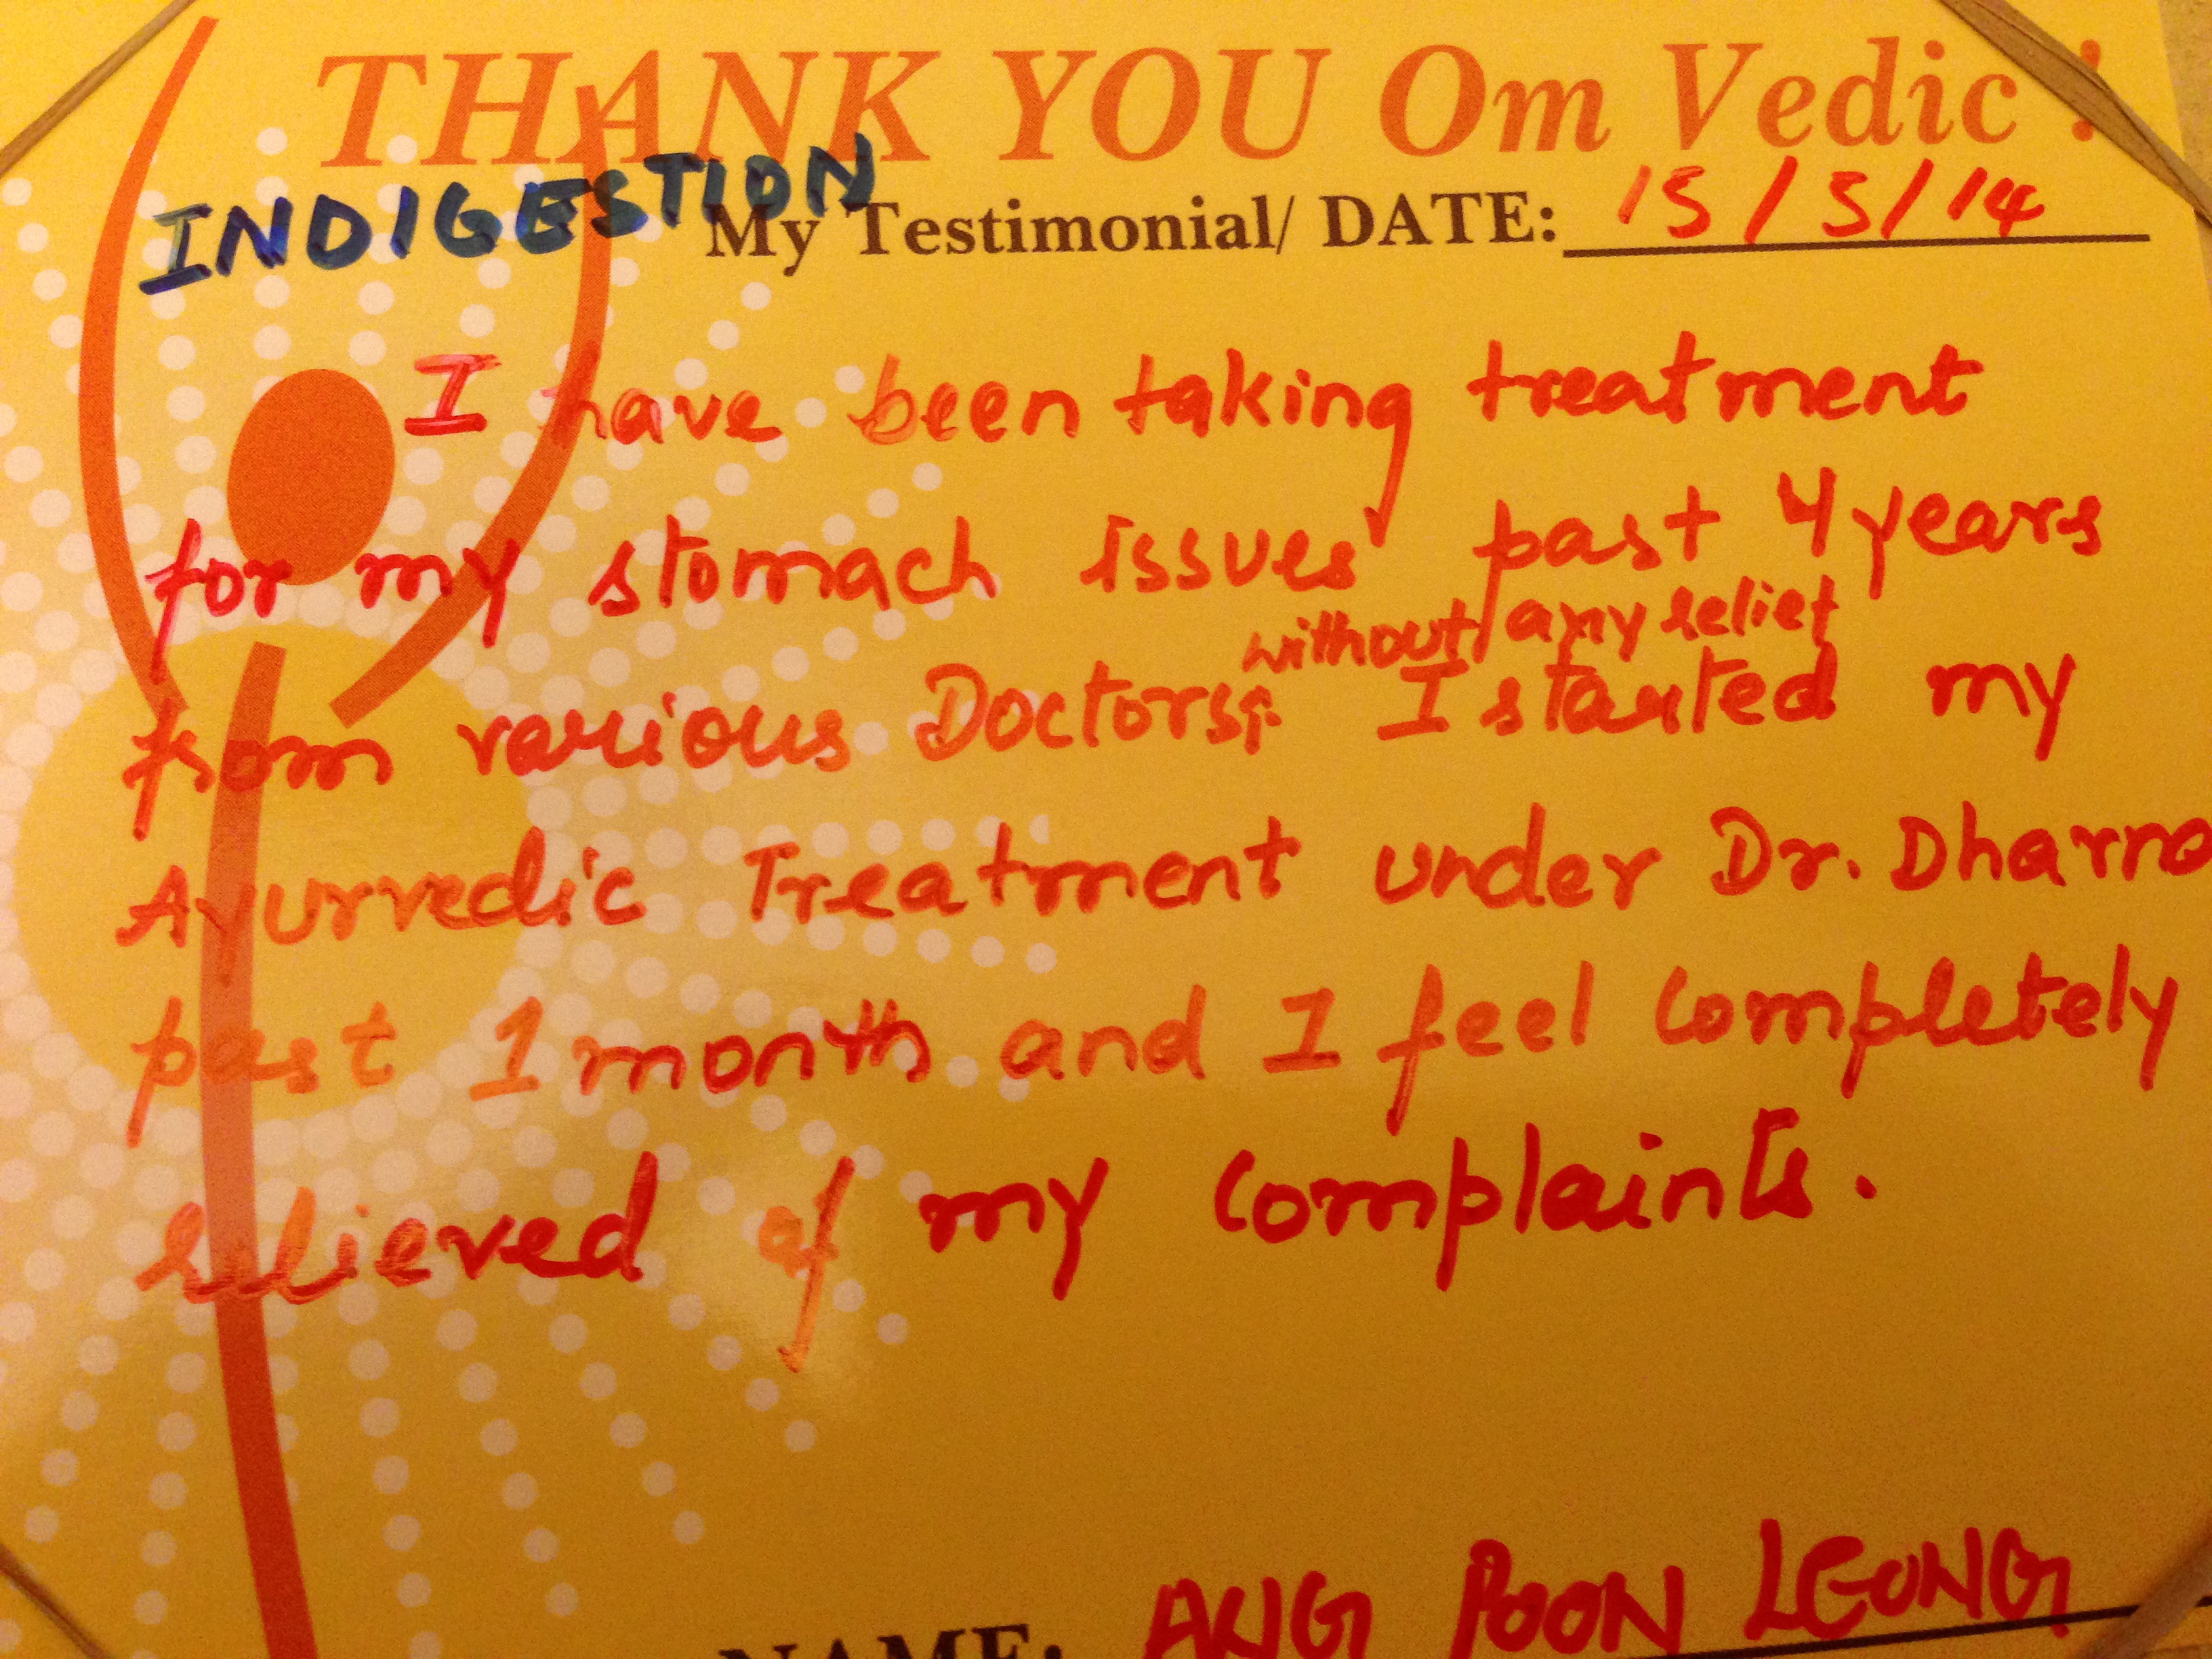 THANK YOU Om Vedic !
INDIGESTION
My Testimonial/ DATE: 15/5/14
I have been taking treatment
for my stomach issues past 4 years
without any relief
from various Doctors. I started my
Ayurvedic Treatment under Dr. Dharna
past 1 month and I feel completely
relieved of my complaints.
NAME: ANG POON LEONG